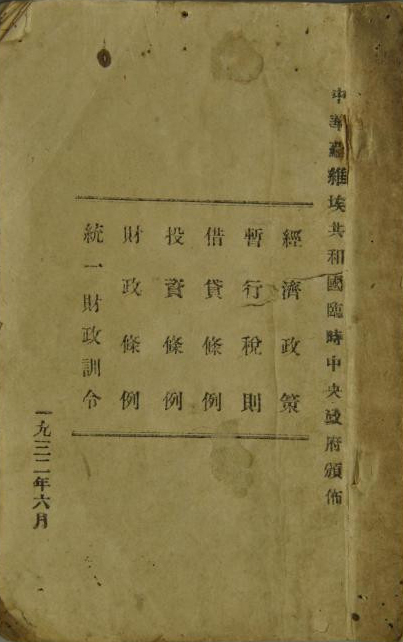 中華蘇維埃共和國臨時中央政府頒佈
經濟政策
暫行稅則
借貸條例
投資條例
財政條例
統一財政訓令
一九三二年六月